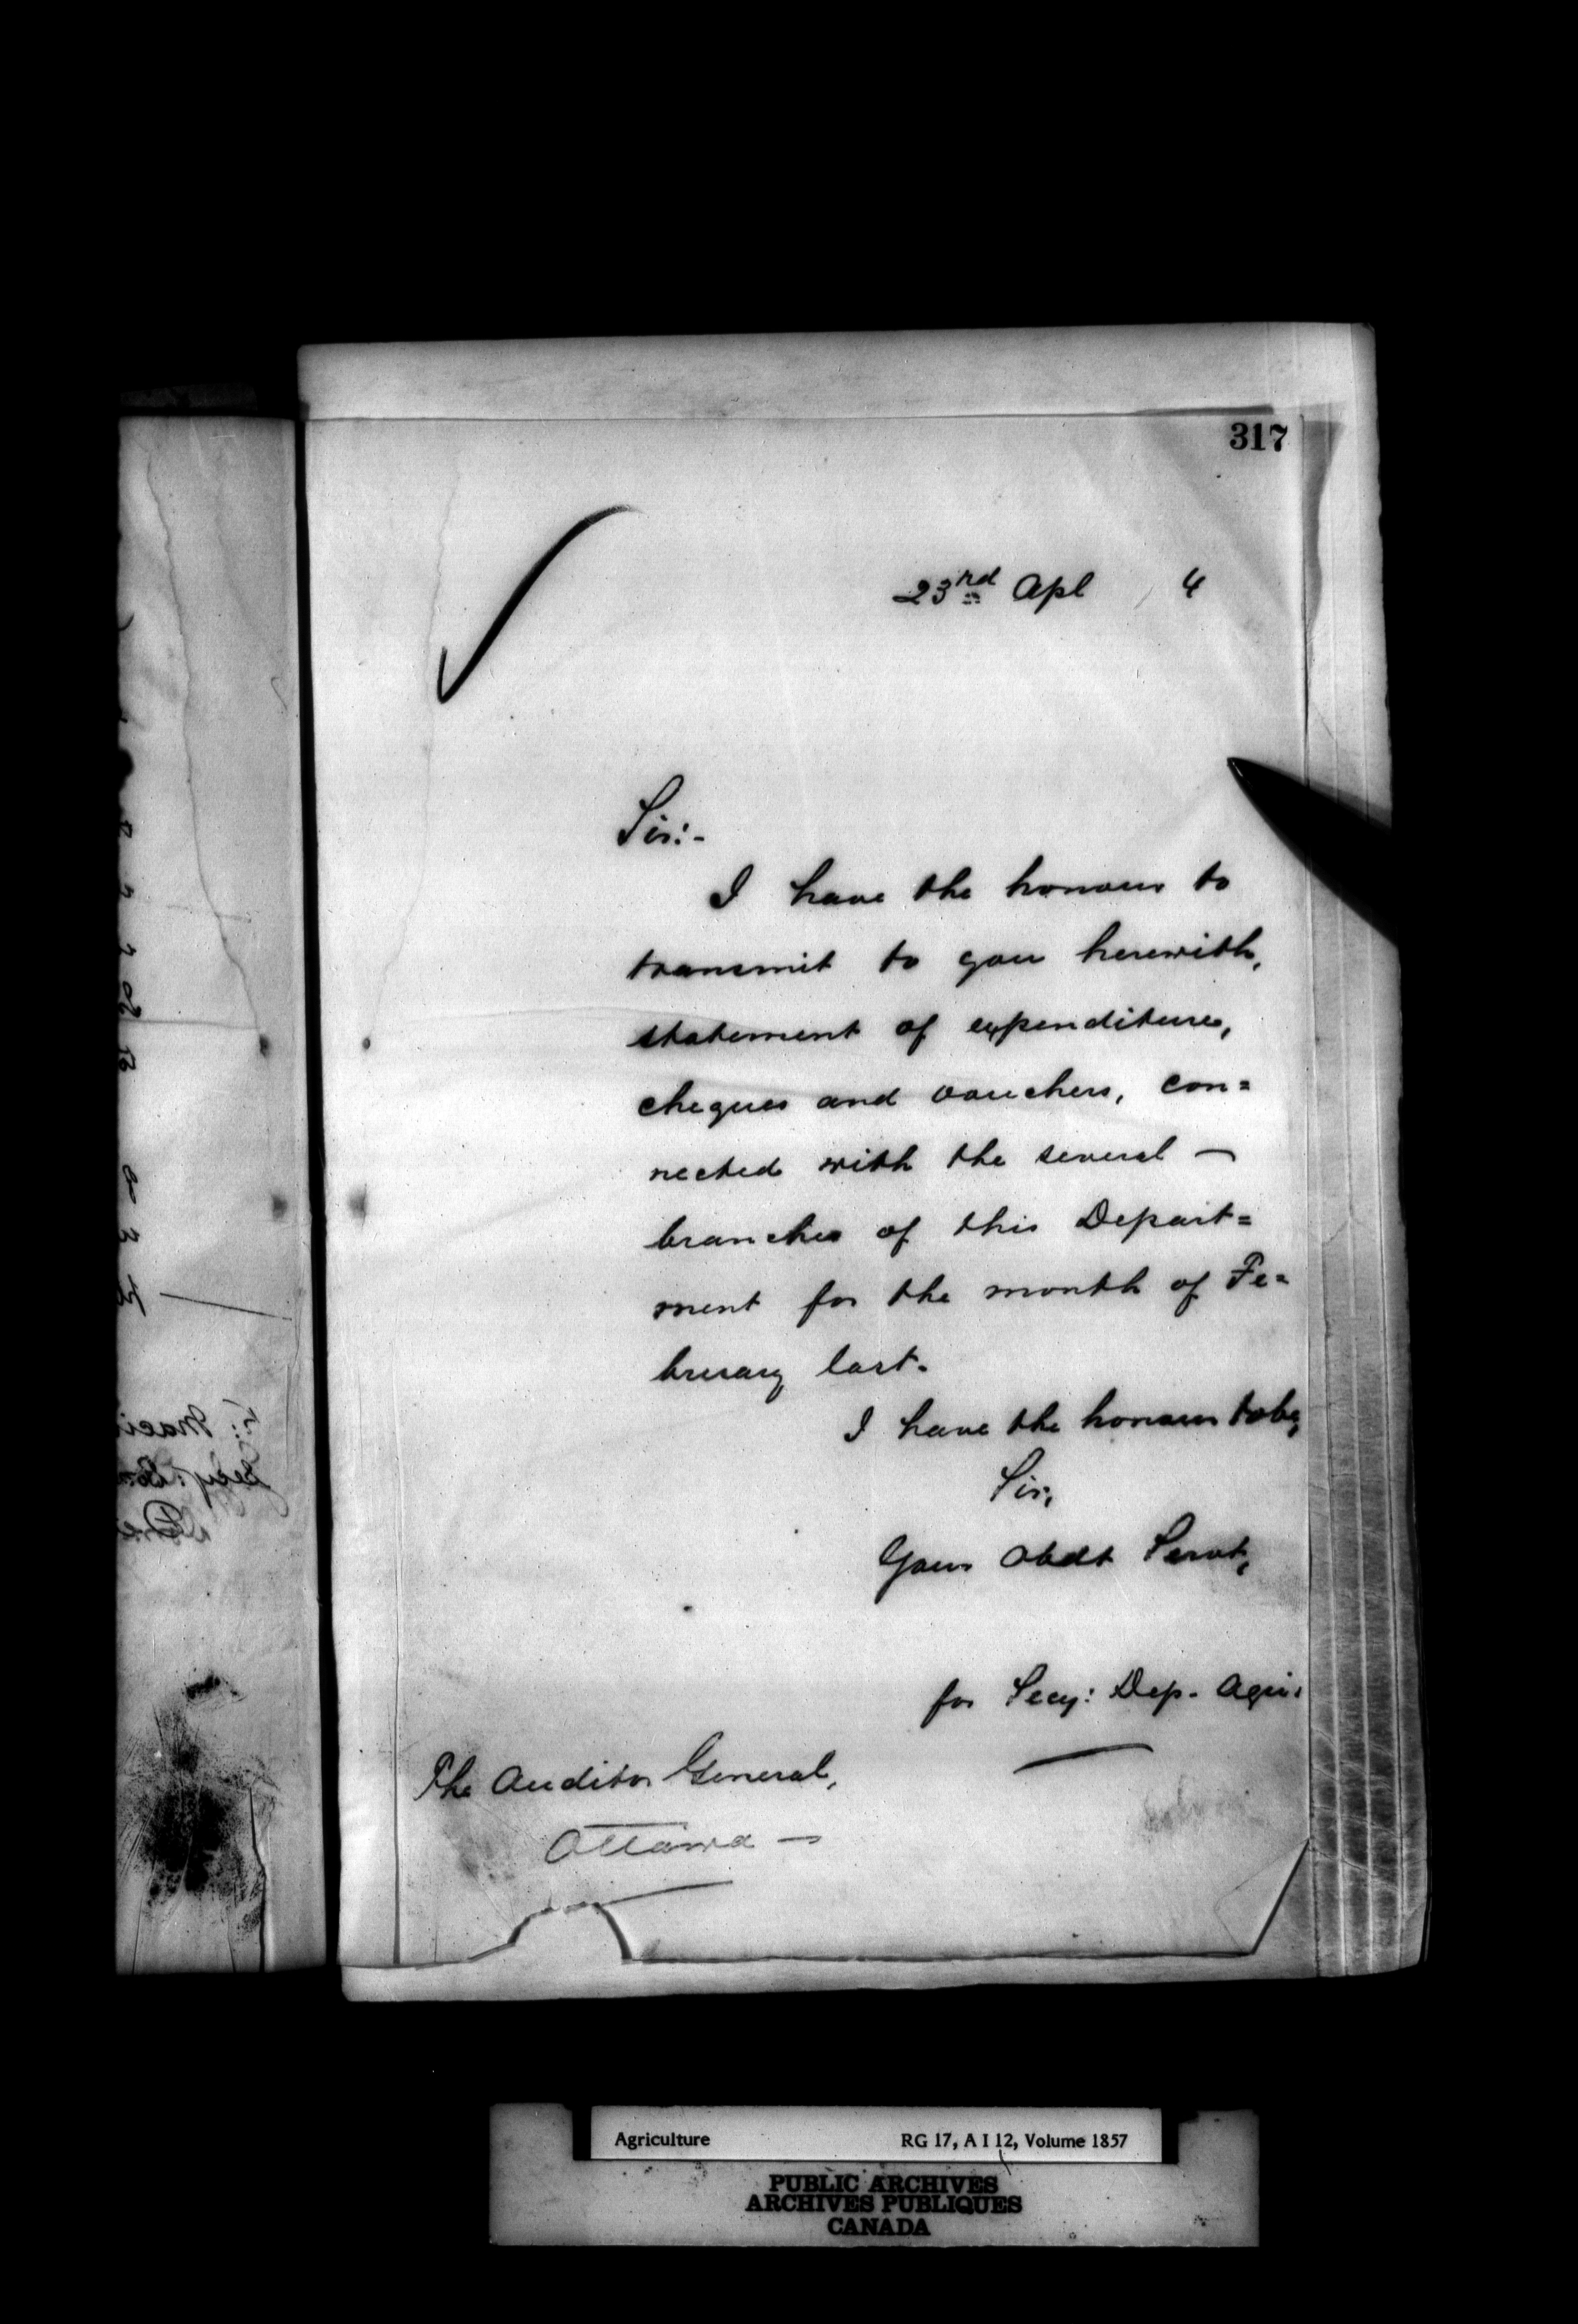 317
23rd Apl 4
Sir:-
I have the honour to
transmit to you herewith,
statement of expenditure,
cheques and vouchers, con=
nected with the several —
branches of this Depart=
ment for the month of Fe=
bruary last.
I have the honour to be,
Sir,
Your Obdt Servt,
for Secy: Dep. Agri.
The Auditor General,
Ottawa —
Agriculture RG 17, A I 12, Volume 1857
PUBLIC ARCHIVES
ARCHIVES PUBLIQUES
CANADA